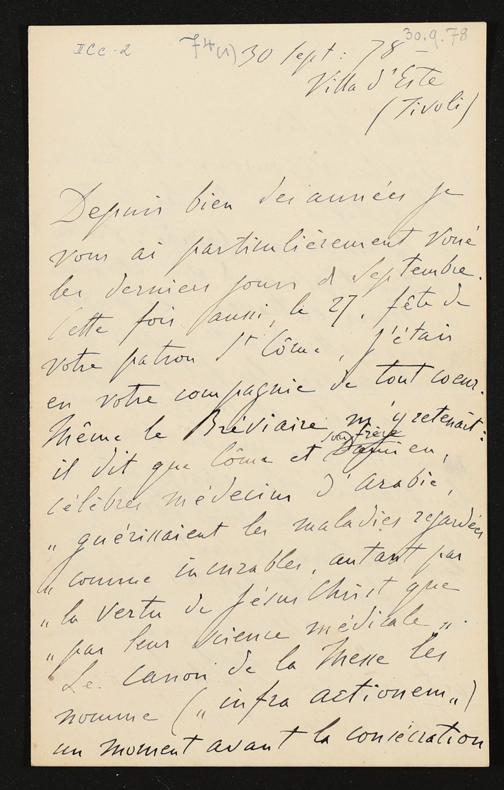 IICc-2 74(1) 30 sept: 78 30.9.78
Villa d'Este
(Tivoli)
Depuis bien des années je
vous ai particulièrement voué
les derniers jours d Septembre.
Cette fois aussi, le 27, fête de
votre patron St Côme, j'étais
en votre compagnie de tout coeur.
Même le Bréviaire m'y retenait:
son frère
il dit que Côme et Damien,
célèbres médecins d'Arabie,
„guérissaient les maladies regardées
„comme incurables, autant par
„la vertu de Jésus Christ que
„par leur science médicale„.
Le Canon de la Messe les
nomme („infra actionem„)
un moment avant la consécration